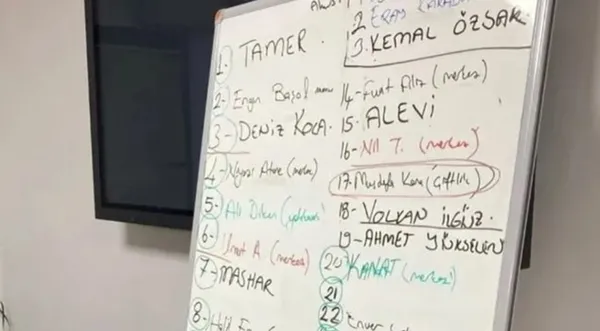 2. ERAY
3. KEMAL ÖZSAK
1- TAMER.
2- Engin Başol
3- DENİZ KOCA.
4- (merkez)
5- Ali Dikan
6- Umut A (merkez)
7- MASHAR
8- Halil
14- Fuat Aliz (merkez)
15- ALEVİ
16- Nil T. (merkez)
17- Mustafa Kara (Çiftlik)
18- VOLKAN İLGÜZ.
19- AHMET YÜKSELEN
20- KANAT (merkez)
21
22 Enver